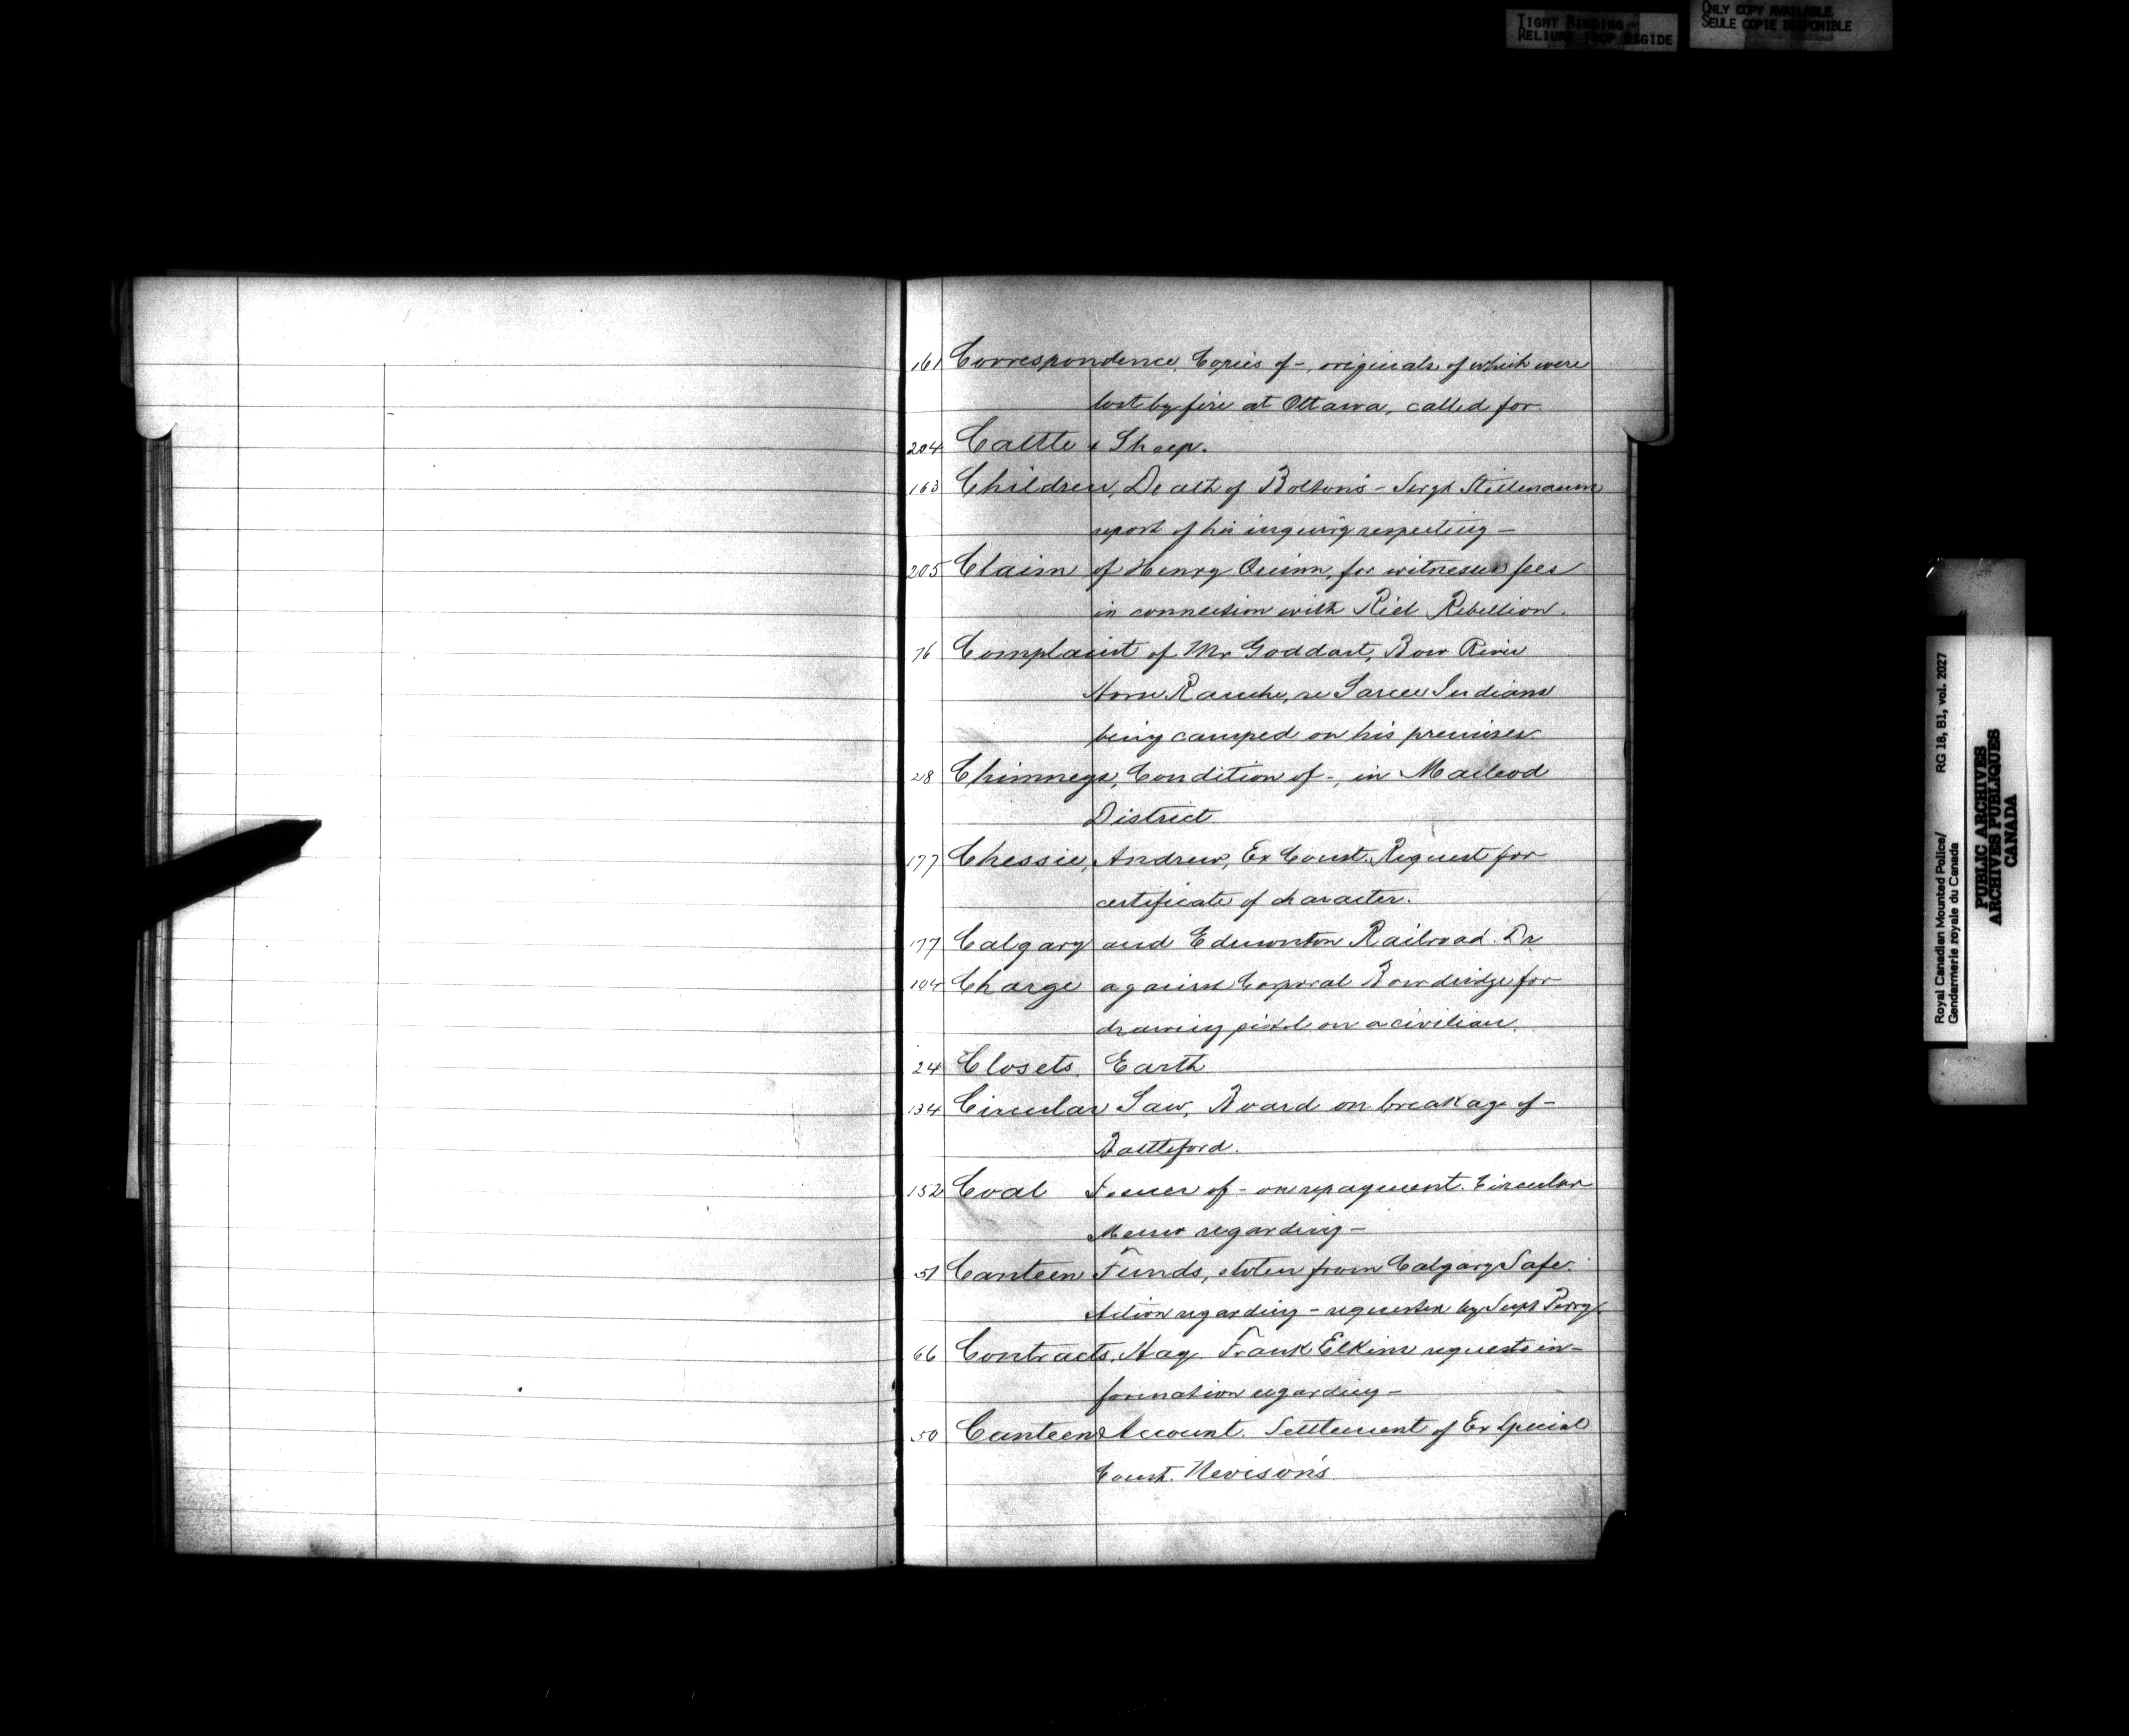 TIGHT BINDING -
RELIURE TROP RIGIDE
ONLY COPY AVAILABLE
SEULE COPIE DISPONIBLE
161 Correspondence, Copies of -, originals of which were
lost by fire at Ottawa, called for.
204 Cattle & Sheep.
163 Children, Death of Bolton's - Sergt
report of his inquiry respecting -
205 Claim of Henry Quinn, for witnesses fees
in connection with Riel Rebellion.
76 Complaint of Mr Goddart, Bow River
Horse Ranche, re Sarcee Indians
being camped on his premises.
28 Chimneys, Condition of -, in Macleod
District.
177 Chessie, Andrew, Ex Const. Request for
certificate of character.
177 Calgary and Edmonton Railroad.
Charge against Corporal Bowdridge for
drawing pistol on a civilian.
24 Closets, Earth
134 Circular Saw, Board on breakage of -
Battleford.
152 Coal Issues of - on repayment. Circular
Memo regarding -
51 Canteen Funds, stolen from Calgary Safe.
Action regarding - requested by Supt Perry.
66 Contracts, Hay. Frank Elkins requests in-
formation regarding -
50 Canteen Account. Settlement of Ex Special
Const. Nevison's.
Royal Canadian Mounted Police/ RG 18, B1, vol. 2027
Gendarmerie royale du Canada
PUBLIC ARCHIVES
ARCHIVES PUBLIQUES
CANADA